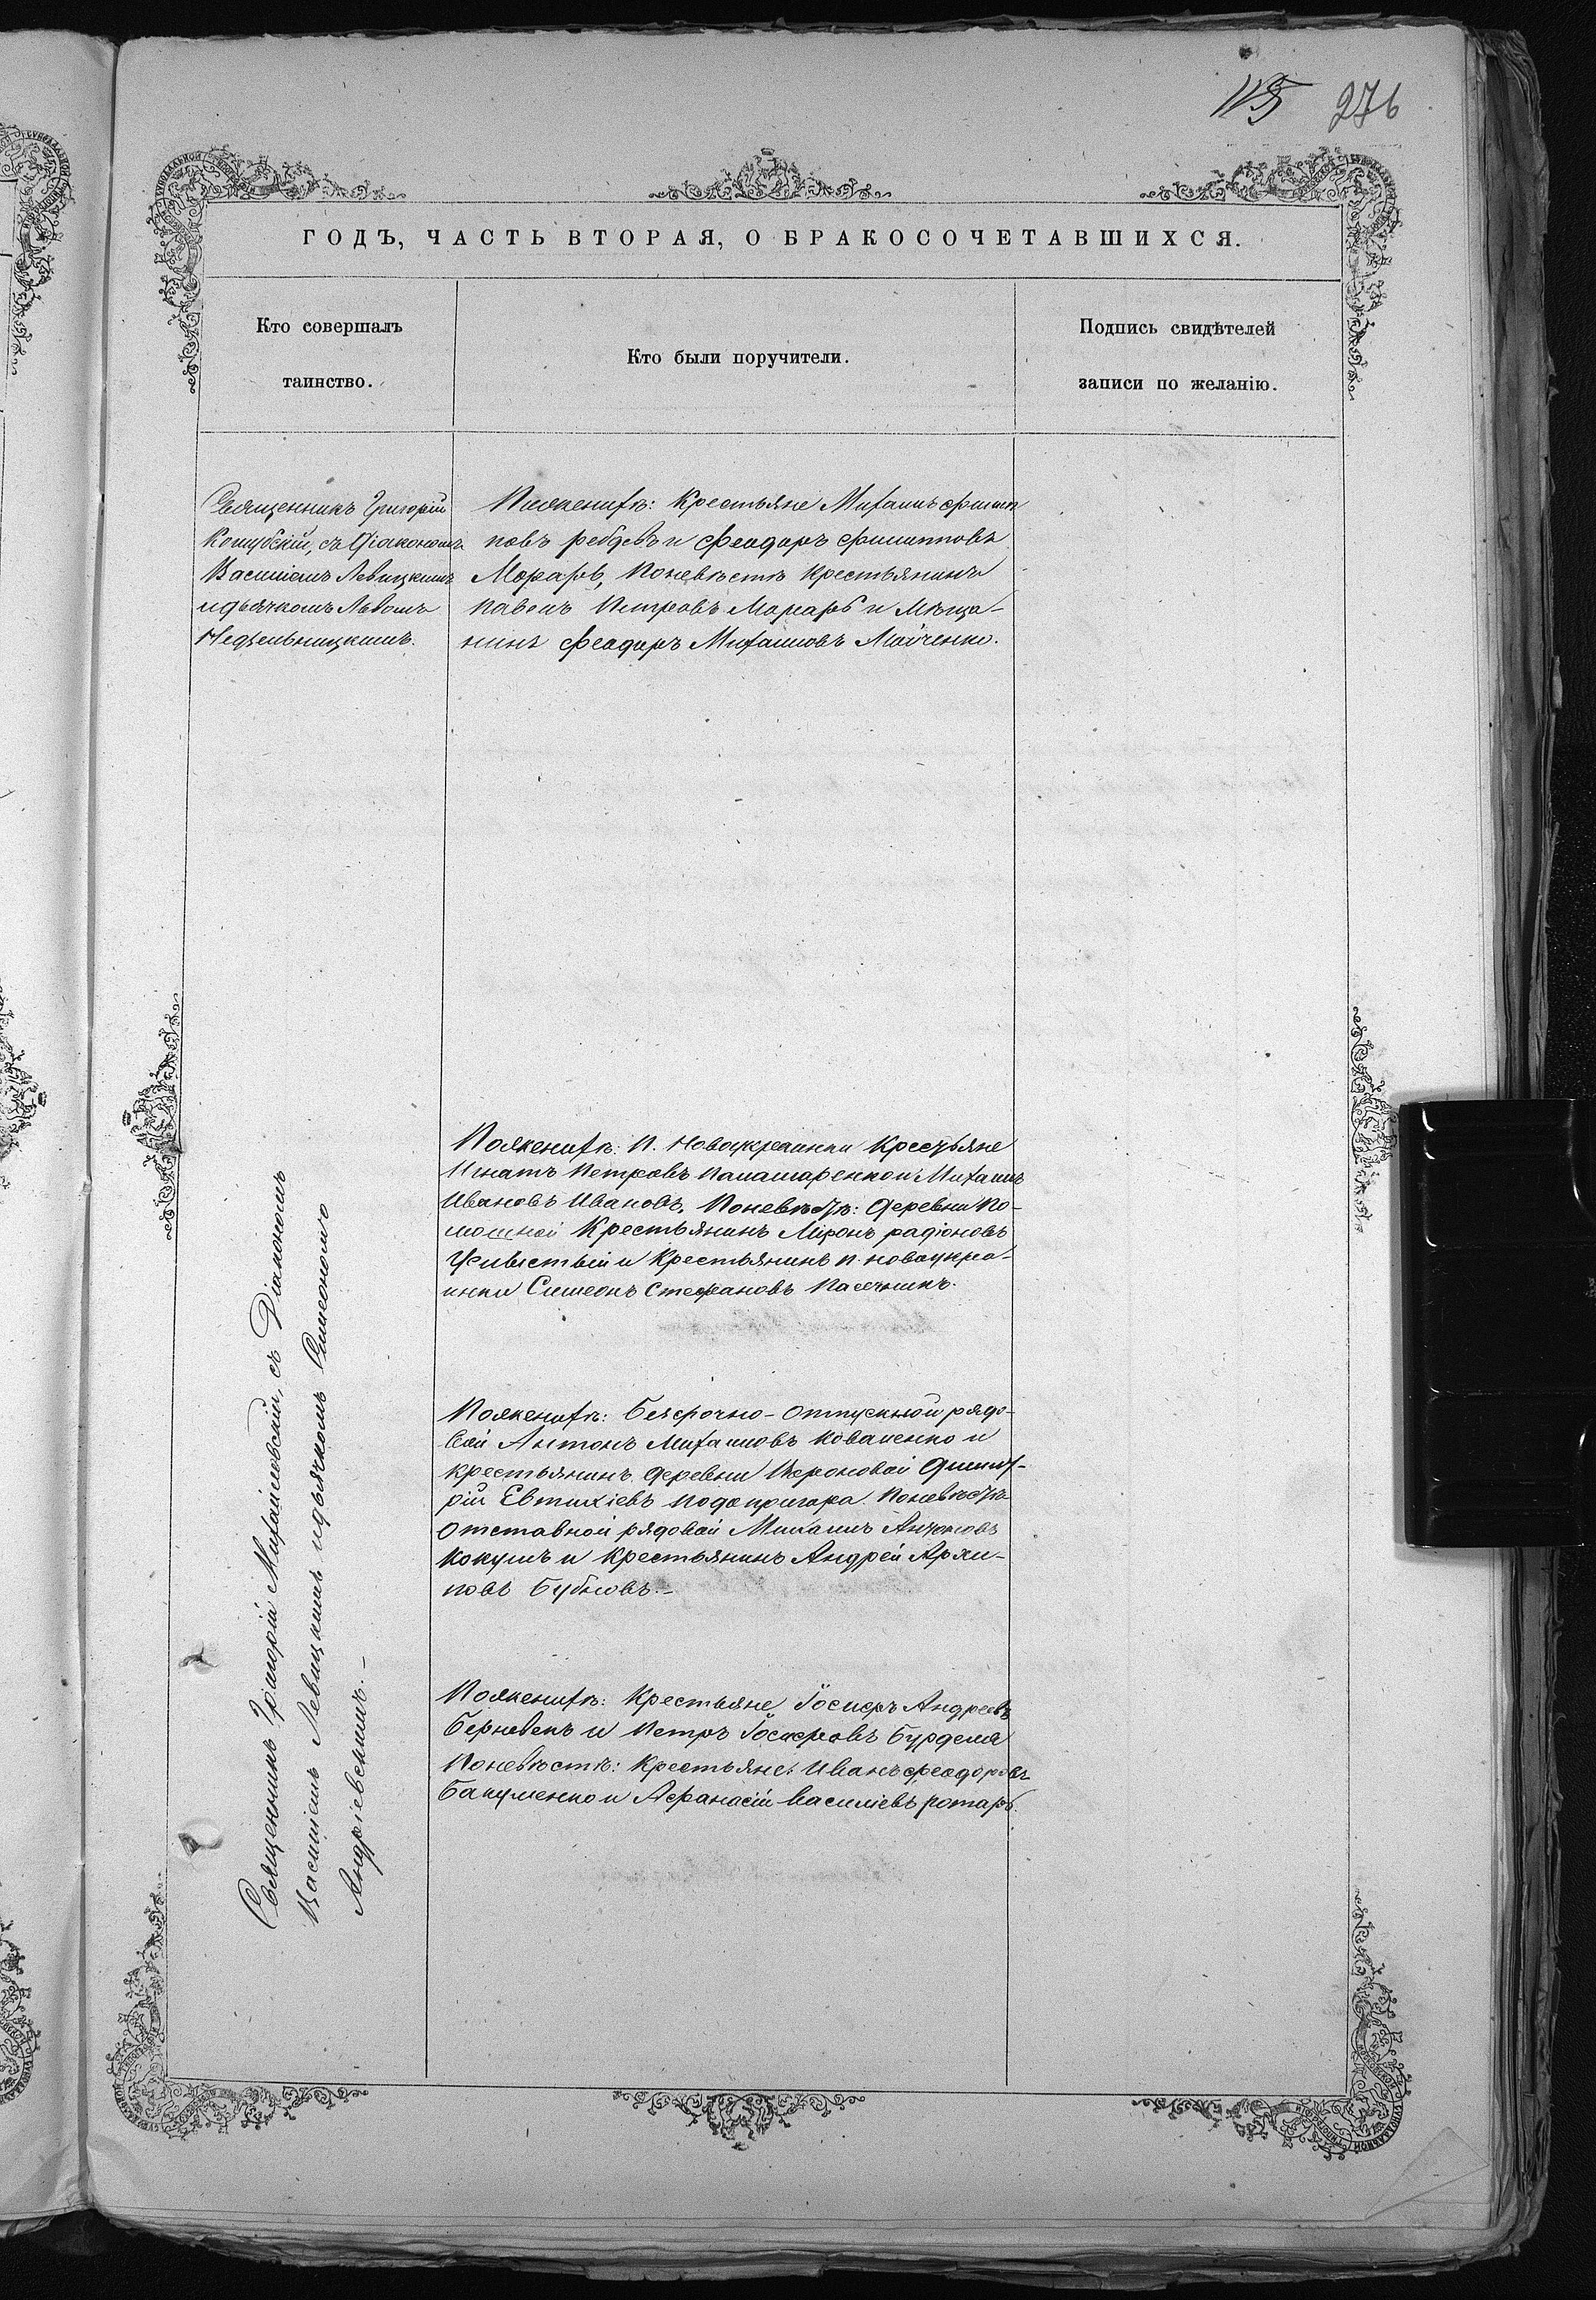 276
ГОДЪ, ЧАСТЬ ВТОРАЯ, О БРАКОСОЧЕТАВШИХСЯ.
Кто совершалъ
таинство.
Кто были поручители.
Подпись свидѣтелей
записи по желанію.
Священникъ Григорій
съ Діакономъ
Василіемъ Левицкимъ
и дьячкомъ Львомъ
Недзельницкимъ.
Поженихѣ: Крестьяне Михаилъ Филип
повъ и Феодоръ Филипповъ
Морарь, Поневѣстѣ Крестьянинъ
Павелъ Петровъ Морарь и Мѣща-
нинъ Феодоръ Михаиловъ
Священникъ Григорій Михайловскій, съ Діакономъ
Василіемъ Левицкимъ и дьячкомъ Симеономъ
Андріевскимъ.-
Поженихѣ: П. Новоукраинки Крестьяне
Игнатъ Петровъ и Михаилъ
Ивановъ Ивановъ, Поневѣстѣ: Деревни По-
мошной Крестьянинъ Міронъ Радіоновъ
и Крестьянинъ п. Новоукра-
инки Симеонъ Стефановъ Пасечникъ.
Поженихѣ: Безсрочно-отпускной рядо-
вой Антонъ Михаиловъ Коваленко и
крестьянинъ деревни Димит-
рій Евтихіевъ Подопригора. Поневѣстѣ
Отставной рядовой Михаилъ Антоновъ
и крестьянинъ Андрей Архи-
повъ Бубновъ.-
Поженихѣ: Крестьяне Іосифъ Андреевъ
и Петръ Іосифовъ Бурдела
Поневѣстѣ: Крестьяне: Иванъ Феодоровъ
Бакуменко и Афанасій Василіевъ Ротарь.